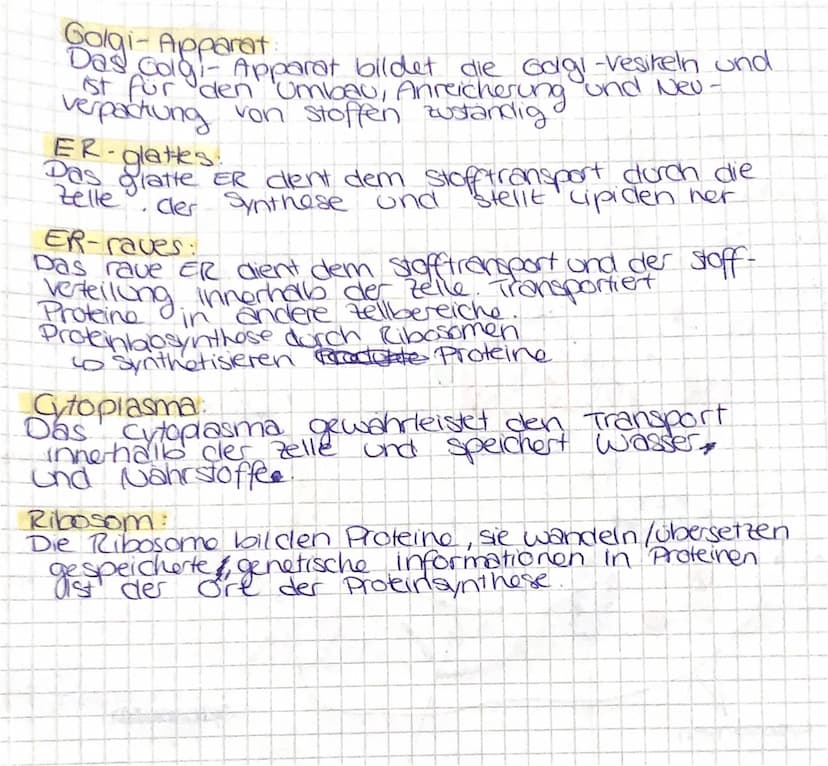 Golgi-Apparat:
Das Golgi-Apparat bildet die Golgi-Vesikeln und
ist für den Umbau, Anreicherung und Neu-
verpackung von Stoffen zuständig
ER-glattes:
Das glatte ER dient dem Stofftransport durch die
Zelle. der Synthese und stellt Lipiden her
ER-raues:
Das raue ER dient dem Stofftransport und der Stoff-
verteilung innerhalb der Zelle. Transportiet
Proteine in andere Zellbereiche.
Proteinbiosynthose durch Ribosomen
↳ synthetisieren Proteine
Cytoplasma:
Das Cytoplasma gewährleistet den Transport
innerhalb der Zelle und speichert Wasser,
und Nährstoffe.
Ribosom:
Die Ribosome bilden Proteine, sie wandeln/übersetzen
gespeicherte, genetische informationen in Proteinen
ist der Ort der Proteinsynthese.